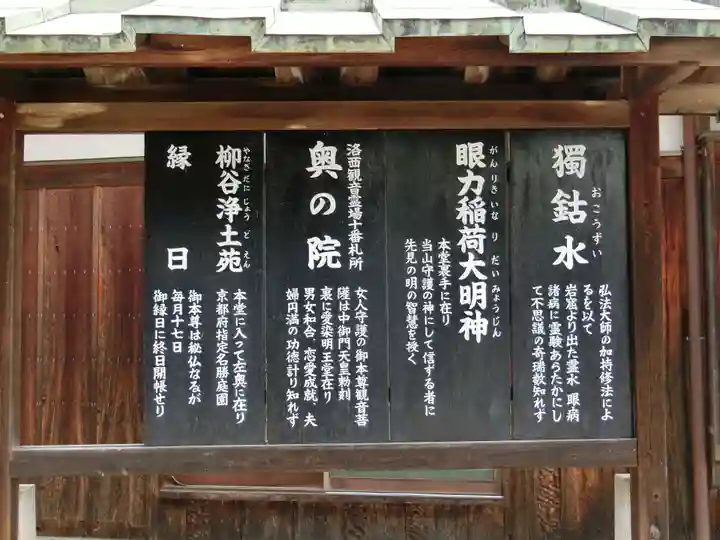 獨鈷水
おこうずい
弘法大師の加持修法によ
るを以て
岩窟より出た霊水 眼病
諸病に霊験あらたかにし
て不思議の奇瑞数知れず
眼力稲荷大明神
がんりきいなりだいみょうじん
本堂裏手に在り
当山守護の神にして信ずる者に
先見の明の智慧を授く
洛西観音霊場十番札所
奥の院
女人守護の御本尊観音菩
薩は中御門天皇勅刻
裏に愛染明王堂在り
男女和合、恋愛成就、夫
婦円満の功徳計り知れず
柳谷浄土苑
やなぎだにじょうどえん
本堂に入って左奥に在り
京都府指定名勝庭園
縁日
御本尊は秘仏なるが
毎月十七日
御縁日に終日開帳せり